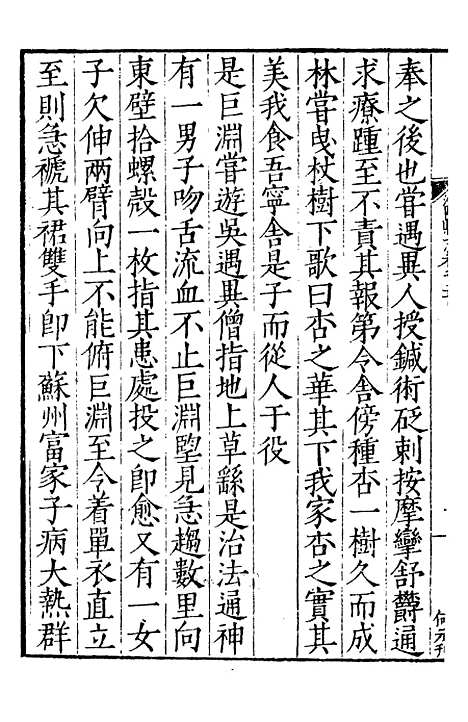 奉之後也嘗遇異人授鍼術砭刺按摩攣舒欝通
求療踵至不責其報第令舎傍種杏一樹久而成
林嘗曳杖樹下歌曰杏之華其下我家杏之實其
美我食吾寧舎是子而從人于役
是巨淵嘗遊吳遇異僧指地上草繇是治法通神
有一男子吻舌流血不止巨淵朢見急趨數里向
東壁拾螺殻一枚指其患處投之卽愈又有一女
子欠伸兩臂向上不能俯巨淵至令着單衣直立
至則急褫其裙雙手卽下蘇州富家子病大熱群